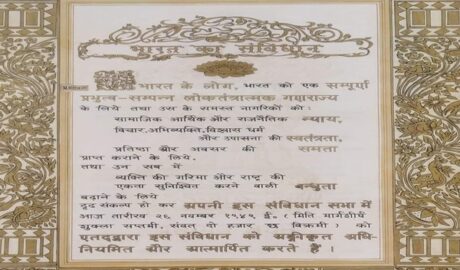 भारत का संविधान
भारत के लोग, भारत को एक सम्पूर्ण
प्रभुत्व-सम्पन्न लोकतंत्रात्मक गणराज्य
के लिये तथा उस के समस्त नागरिकों को:
सामाजिक आर्थिक और राजनैतिक न्याय,
विचार,अभिव्यक्ति,विश्वास धर्म
और उपासना की स्वतंत्रता,
प्रतिष्ठा और अवसर की समता
प्राप्त कराने के लिये,
तथा उन सब में
व्यक्ति की गरिमा और राष्ट्र की
एकता सुनिश्चित करने वाली बन्धुता
बढ़ाने के लिये
दृढ़ संकल्प हो कर अपनी इस संविधान सभा में
आज तारीख २६ नवम्बर १९४९ ई. (मिति मार्गशीर्ष
शुक्ला सप्तमी, संवत दो हजार छ विक्रमी) को
एतद्द्वारा इस संविधान को अङ्गीकृत अधि-
नियमित और आत्मार्पित करते है।